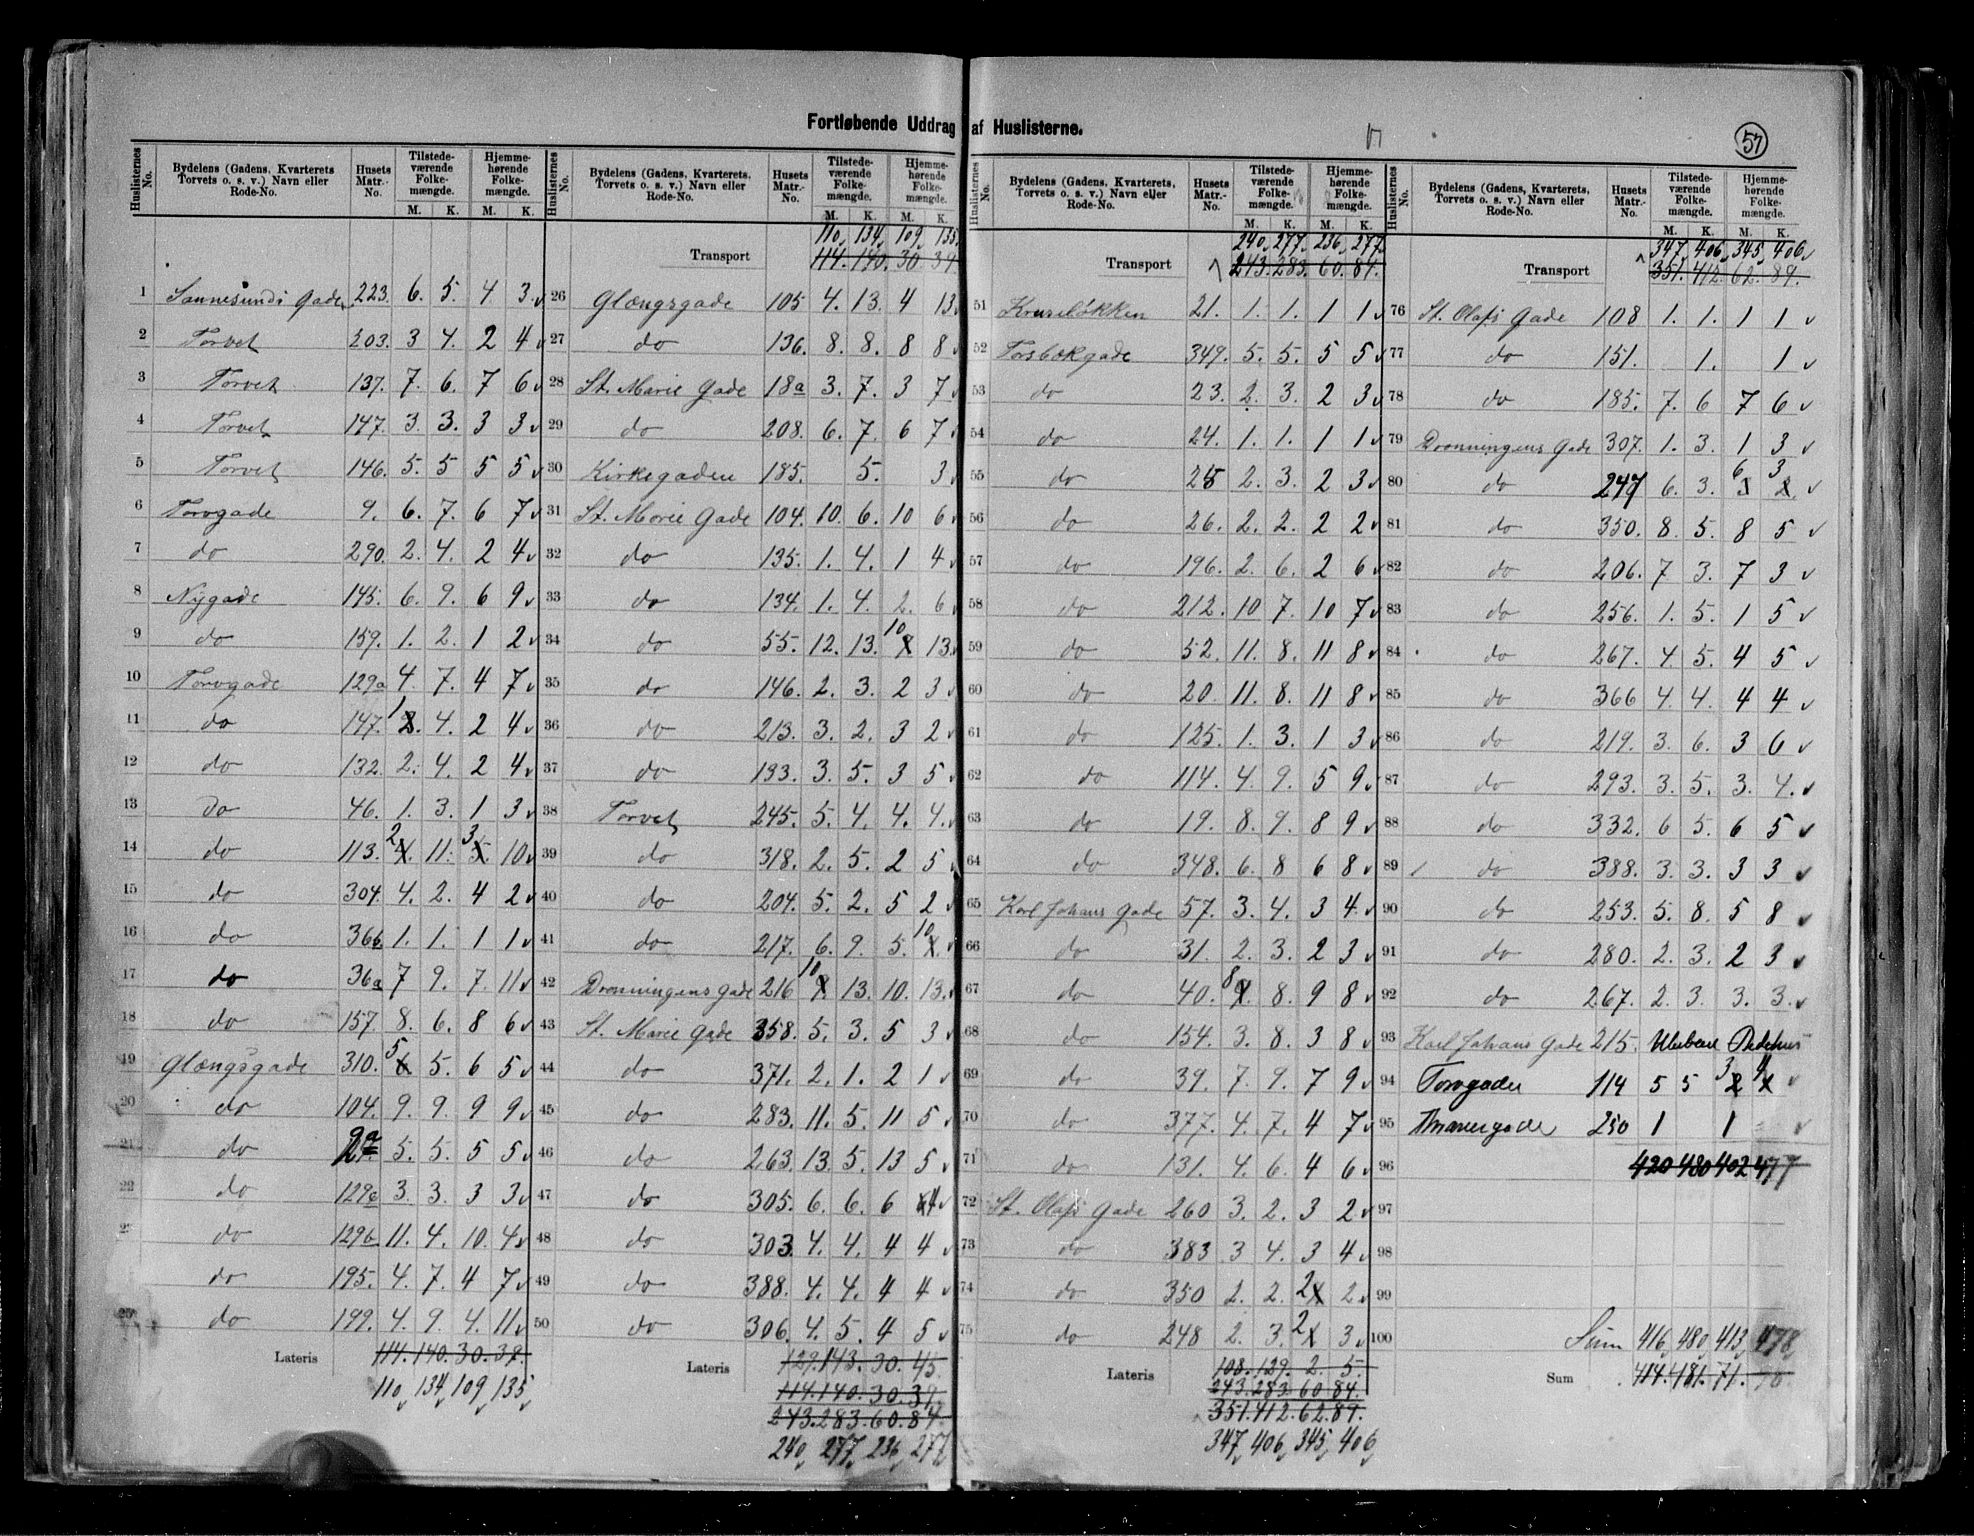 Fortløbende Uddrag af Huslisterne.
57
Huslisternes No. Bydelens (Gadens, Kvarterets Torvets o. s. v.) Navn eller Rode-No. Husets Matr.-No. Tilstedeværende Folkemængde. M. K. Hjemmehørende Folkemængde. M. K.
1 Sannesunds Gade 223. 6. 5. 4. 3.
2 Torvet 203. 3 4. 2 4
3 Torvet 137. 7. 6. 7 6
4 Torvet 147. 3. 3. 3 3
5 Torvet 146. 5. 5 5 5
6 Torvgade 9. 6. 7. 6 7
7 do 290. 2. 4. 2 4
8 Nygade 145. 6. 9. 6 9
9 do 159. 1. 2. 1 2
10 Torvgade 129a 4. 7. 4 7
11 do 147. 1 4. 2 4
12 do 132. 2. 4. 2 4
13 do 46. 1. 3. 1 3
14 do 113. 2 11. 3 10
15 do 304. 4. 2. 4 2
16 do 36b 1. 1. 1 1
17 do 36a 7 9. 7. 11
18 do 157. 8. 6. 8 6
19 Glængsgade 310. 5 5. 6 5
20 do 104. 9. 9. 9 9
21 do 5. 5. 5 5
22 do 129c 3. 3. 3 3
do 129b 11. 4. 10. 4
do 195. 4. 7. 4 7
25 do 199. 4. 9. 4. 11
Lateris 114. 140. 30. 39.
110 134 109 135
Huslisternes No. Bydelens (Gadens, Kvarterets, Torvets o. s. v.) Navn eller Rode-No. Husets Matr.-No. Tilstedeværende Folkemængde. M. K. Hjemmehørende Folkemængde. M. K.
110 134 109 135
Transport 114. 140. 30 39
26 Glængsgade 105 4. 13. 4 13
27 do 136. 8. 8. 8 8
28 St. Marie Gade 18a 3. 7. 3 7
29 do 208. 6. 7. 6 7
30 Kirkegaden 185. 5. 3
31 St. Marie Gade 104. 10. 6. 10 6
32 do 135. 1. 4. 1 4
33 do 134. 1. 4. 2. 6
34 do 55. 12. 13. 10 13
35 do 146. 2. 3. 2 3
36 do 213. 3. 2. 3 2
37 do 193. 3. 5. 3 5
38 Torvet 245. 5. 4. 4. 4.
39 do 318. 2. 5. 2 5
40 do 204. 5. 2. 5 2
41 do 217. 6. 9. 5. 10
42 Dronningens Gade 216 10 13. 10. 13.
43 St. Marie Gade 358. 5. 3. 5 3
44 do 371. 2. 1. 2 1
45 do 283. 11. 5. 11 5
46 do 263. 13. 5. 13 5
47 do 305. 6. 6. 6 4
48 do 303. 4. 4. 4 4
49 do 388. 4. 4. 4 4
50 do 306. 4. 5. 4 5
129. 143. 30. 45.
Lateris 114. 140. 30. 39.
243. 283. 60. 84.
240 277 236 277
Huslisternes No. Bydelens (Gadens, Kvarterets, Torvets o. s. v.) Navn eller Rode-No. Husets Matr.-No. Tilstedeværende Folkemængde. M. K. Hjemmehørende Folkemængde. M. K.
240 277 236 277
Transport 243. 283. 60. 84.
51 Kruseløkken 21. 1. 1. 1 1
52 Torsbækgade 349. 5. 5. 5 5
53 do 23. 2. 3. 2 3
54 do 24. 1. 1. 1 1
55 do 25 2. 3. 2 3
56 do 26. 2. 2. 2 2
57 do 196. 2. 6. 2 6
58 do 212. 10 7. 10 7
59 do 52. 11. 8. 11 8
60 do 20. 11. 8. 11 8
61 do 125. 1. 3. 1 3
62 do 114. 4. 9. 5 9.
63 do 19. 8. 9. 8 9
64 do 348. 6. 8 6 8
65 Karl Johans Gade 57. 3. 4. 3 4.
66 do 31. 2. 3. 2 3
67 do 40. 8 8. 9 8
68 do 154. 3. 8. 3 8
69 do 39. 7. 9. 7 9
70 do 377. 4. 7. 4 7
71 do 131. 4. 6. 4 6
72 St. Olafs Gade 260 3. 2. 3 2
73 do 383 3 4. 3 4
74 do 350 2. 2. 2 2
75 do 248 2. 3. 2 3
108. 129. 2. 5.
Lateris 243. 283 60. 84.
351. 412. 62. 89.
347 406 345 406
Huslisternes No. Bydelens (Gadens, Kvarterets, Torvets o. s. v.) Navn eller Rode-No. Husets Matr.-No. Tilstedeværende Folkemængde. M. K. Hjemmehørende Folkemængde. M. K.
347 406 345 406
Transport 351. 412. 62. 89.
76 St. Olafs Gade 108 1. 1. 1 1
77 do 151. 1. 1
78 do 185. 7. 6 7 6
79 Dronningens Gade 307. 1. 3. 1 3
80 do 247 6. 3. 6 3
81 do 350. 8. 5. 8 5
82 do 206. 7 3. 7 3
83 do 256. 1. 5. 1 5
84 do 267. 4. 5. 4 5
85 do 366 4. 4. 4 4
86 do 219. 3. 6. 3 6
87 do 293. 3. 5. 3. 4.
88 do 332. 6 5. 6 5
89 do 388. 3. 3. 3 3
90 do 253. 5. 8. 5 8
91 do 280. 2. 3. 2 3
92 do 267. 2. 3. 3. 3.
93 Karl Johans Gade 215. Ubeboet Bedehus
94 Torvgaden 114 5 5 3 4
95 250 1 1
96 420 480 402 477
97
98
99
100
Sum 416 480 413 478
Sum 414. 481. 71.